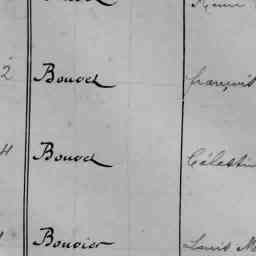 2 Bouvet François
4 Bouvet Célestin
Bouvier Louis